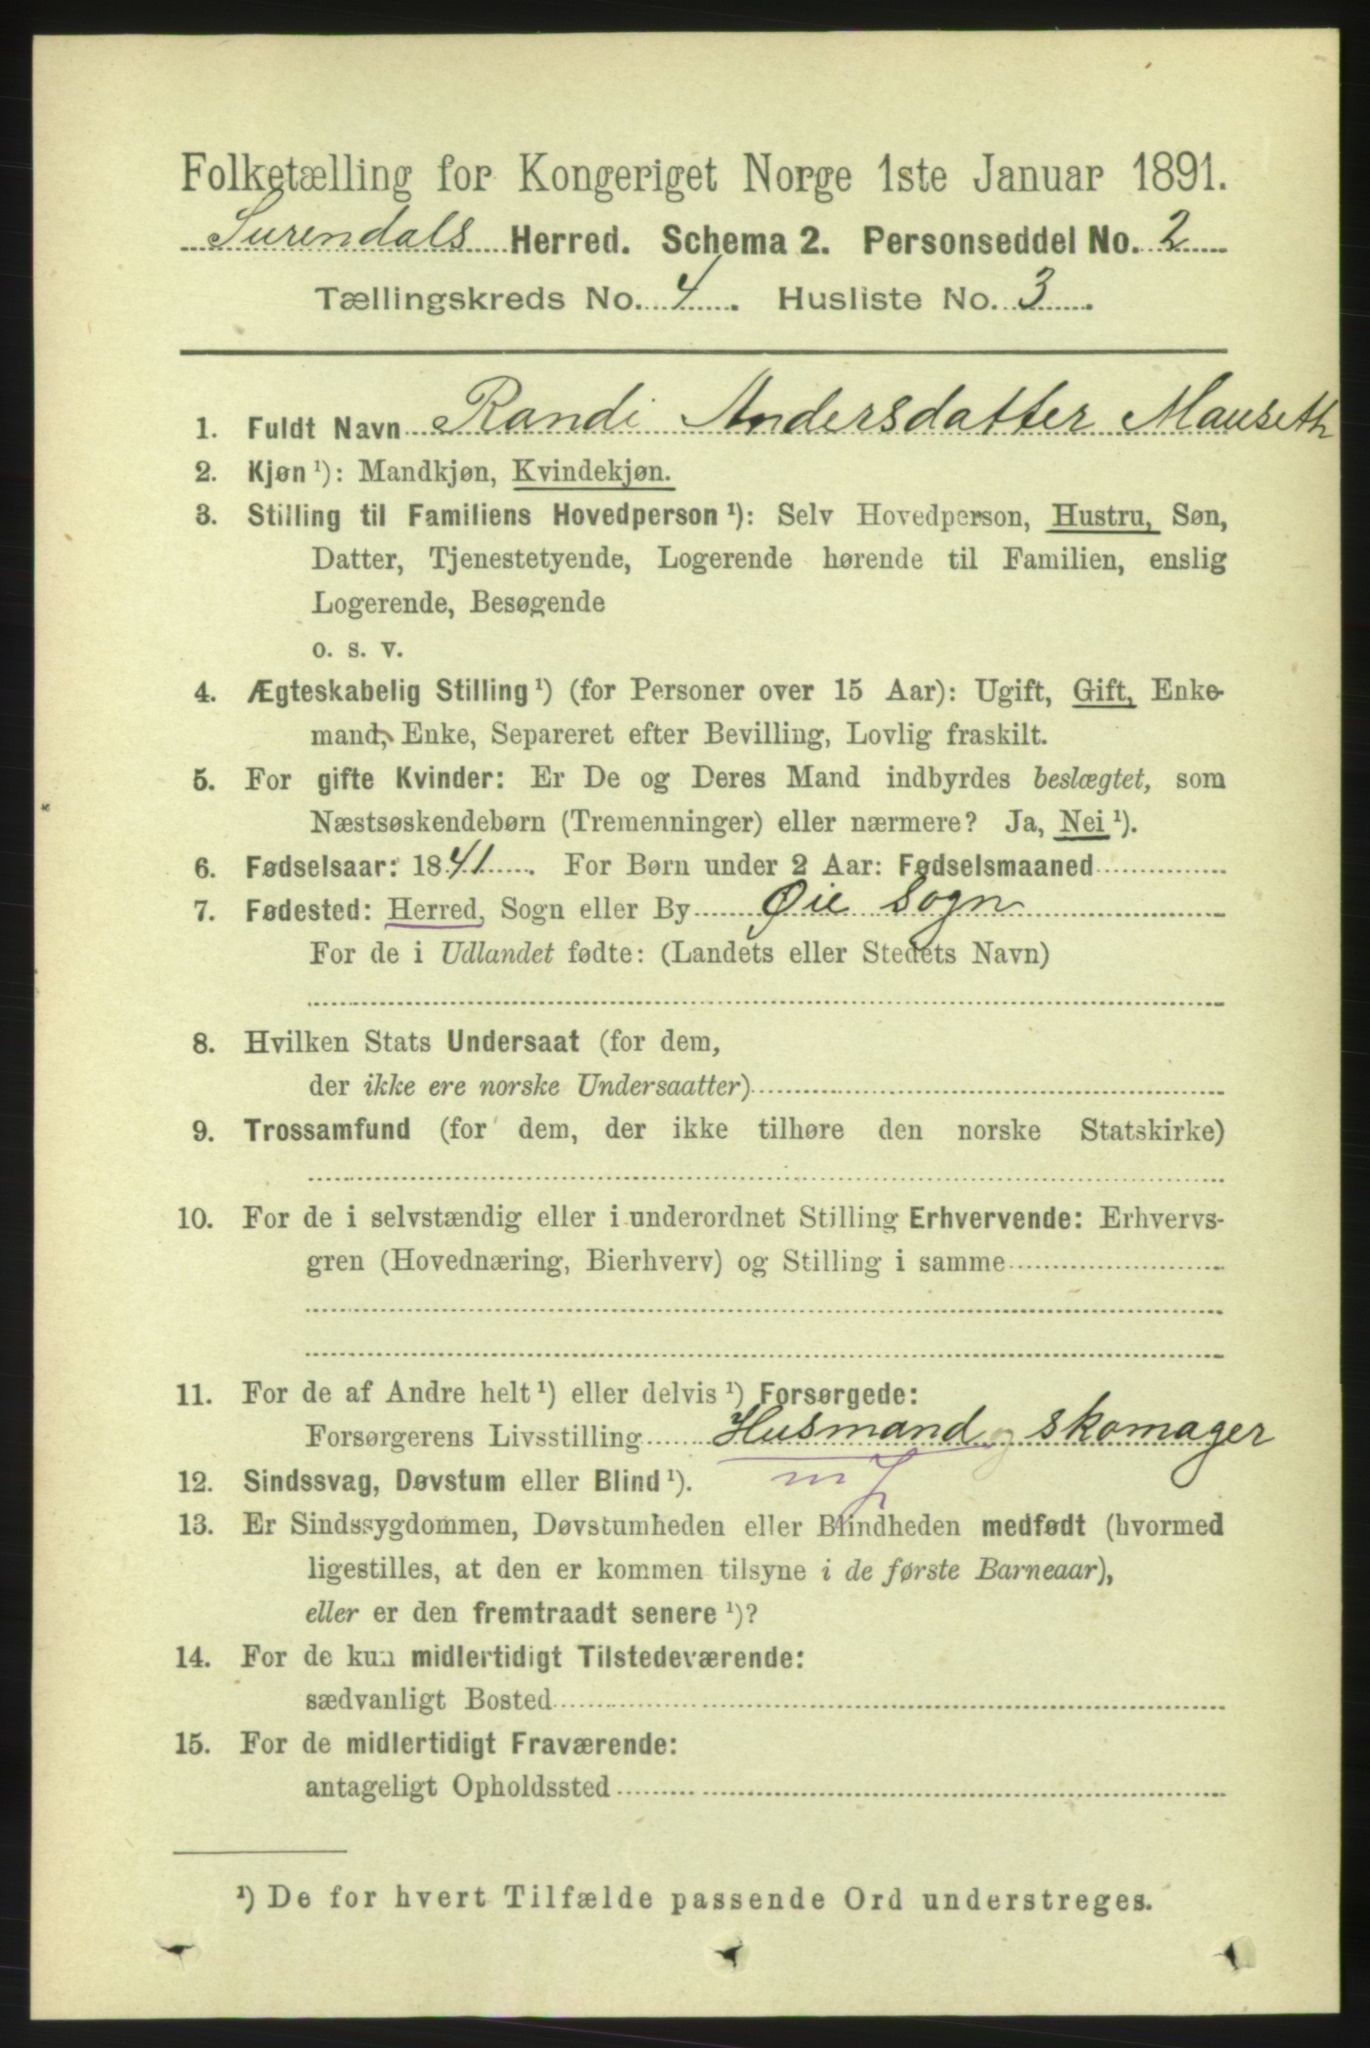 Folketælling for Kongeriget Norge 1ste Januar 1891.
Surendals Herred. Schema 2. Personseddel No. 2
Tællingskreds No. 4. Husliste No. 3.
1. Fuldt Navn Randi Andersdatter Mauseth
2. Kjøn ¹): Mandkjøn, Kvindekjøn.
3. Stilling til Familiens Hovedperson ¹): Selv Hovedperson, Hustru, Søn,
Datter, Tjenestetyende, Logerende hørende til Familien, enslig
Logerende, Besøgende
o. s. v.
4. Ægteskabelig Stilling ¹) (for Personer over 15 Aar): Ugift, Gift, Enke-
mand, Enke, Separeret efter Bevilling, Lovlig fraskilt.
5. For gifte Kvinder: Er De og Deres Mand indbyrdes beslægtet, som
Næstsøskendebørn (Tremenninger) eller nærmere? Ja, Nei ¹).
6. Fødselsaar: 1841. For Børn under 2 Aar: Fødselsmaaned
7. Fødested: Herred, Sogn eller By Øie Sogn
For de i Udlandet fødte: (Landets eller Stedets Navn)
8. Hvilken Stats Undersaat (for dem,
der ikke ere norske Undersaatter)
9. Trossamfund (for dem, der ikke tilhøre den norske Statskirke)
10. For de i selvstændig eller i underordnet Stilling Erhvervende: Erhvervs-
gren (Hovednæring, Bierhverv) og Stilling i samme
11. For de af Andre helt ¹) eller delvis ¹) Forsørgede:
Forsørgerens Livsstilling Husmand og skomager
12. Sindssvag, Døvstum eller Blind ¹). mJ
13. Er Sindssygdommen, Døvstumheden eller Blindheden medfødt (hvormed
ligestilles, at den er kommen tilsyne i de første Barneaar),
eller er den fremtraadt senere ¹)?
14. For de kun midlertidigt Tilstedeværende:
sædvanligt Bosted
15. For de midlertidigt Fraværende:
antageligt Opholdssted
¹) De for hvert Tilfælde passende Ord understreges.